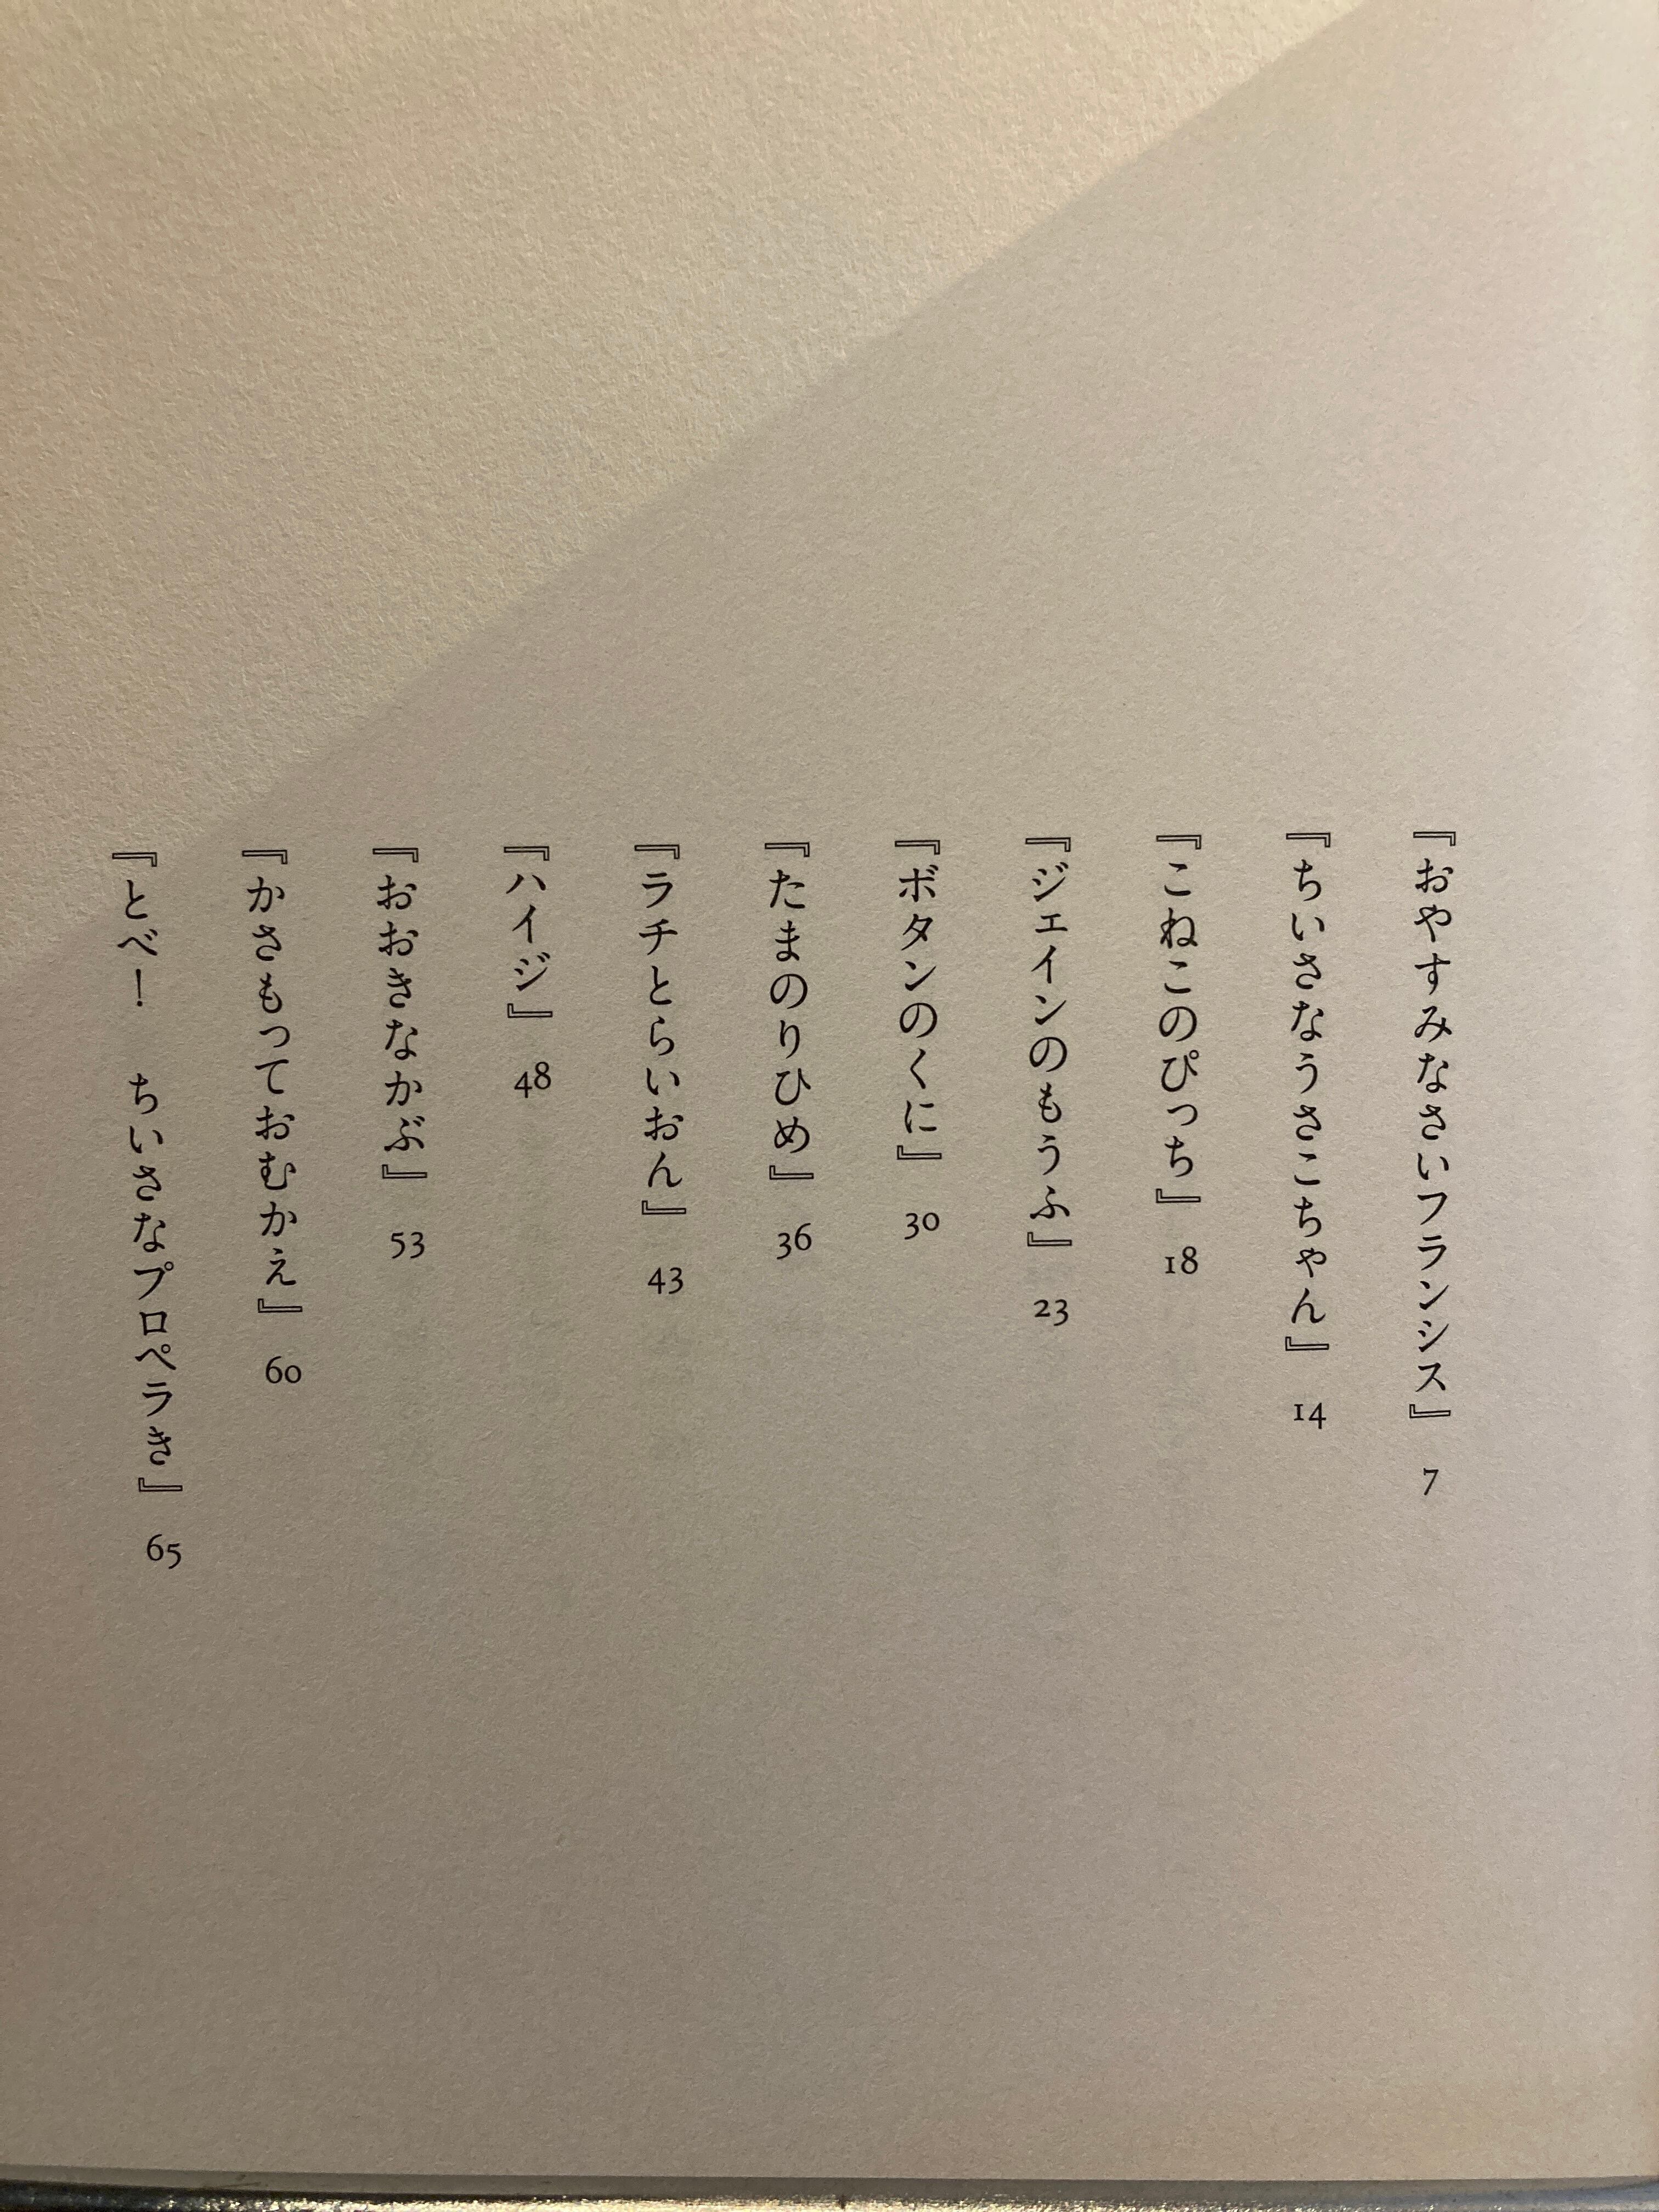 『おやすみなさいフランシス』 7
『ちいさなうさこちゃん』 14
『こねこのぴっち』 18
『ジェインのもうふ』 23
『ボタンのくに』 30
『たまのりひめ』 36
『ラチとらいおん』 43
『ハイジ』 48
『おおきなかぶ』 53
『かさもっておむかえ』 60
『とべ！　ちいさなプロペラき』 65